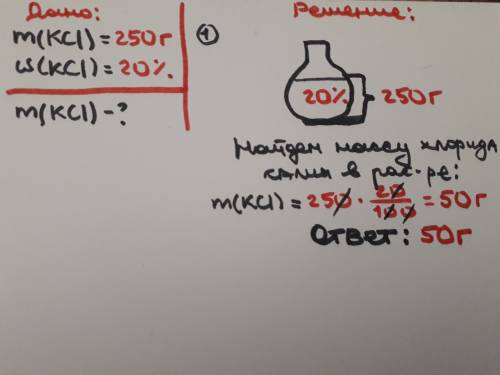 Дано:
m(KCl) = 250г
ω(KCl) = 20%.
m(KCl) - ?
①
Решение:
20%
250г
Найдем массу хлорида
калия в рас-ре:
m(KCl) = 250 · 20/100 = 50г
Ответ: 50г